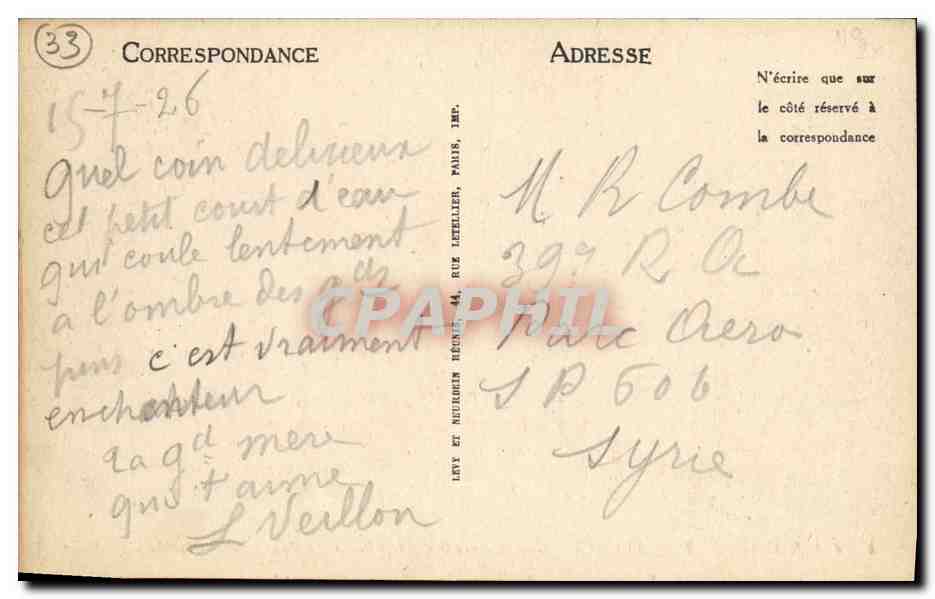 33
CORRESPONDANCE
15-7-26
Quel coin delicieux
cet petit court d'eau
qui coule lentement
a l'ombre des gds
pins c'est vraiment
enchanteur
ta gd mere
qui t aime
L Veillon
LEVY ET NEURDEIN RÉUNIS, 44, RUE LETELLIER, PARIS, IMP.
ADRESSE
N'écrire que sur
le côté réservé à
la correspondance
M R Combe
397 R Oc
Parc Aero
S P 606
Syrie
CPAPHIL